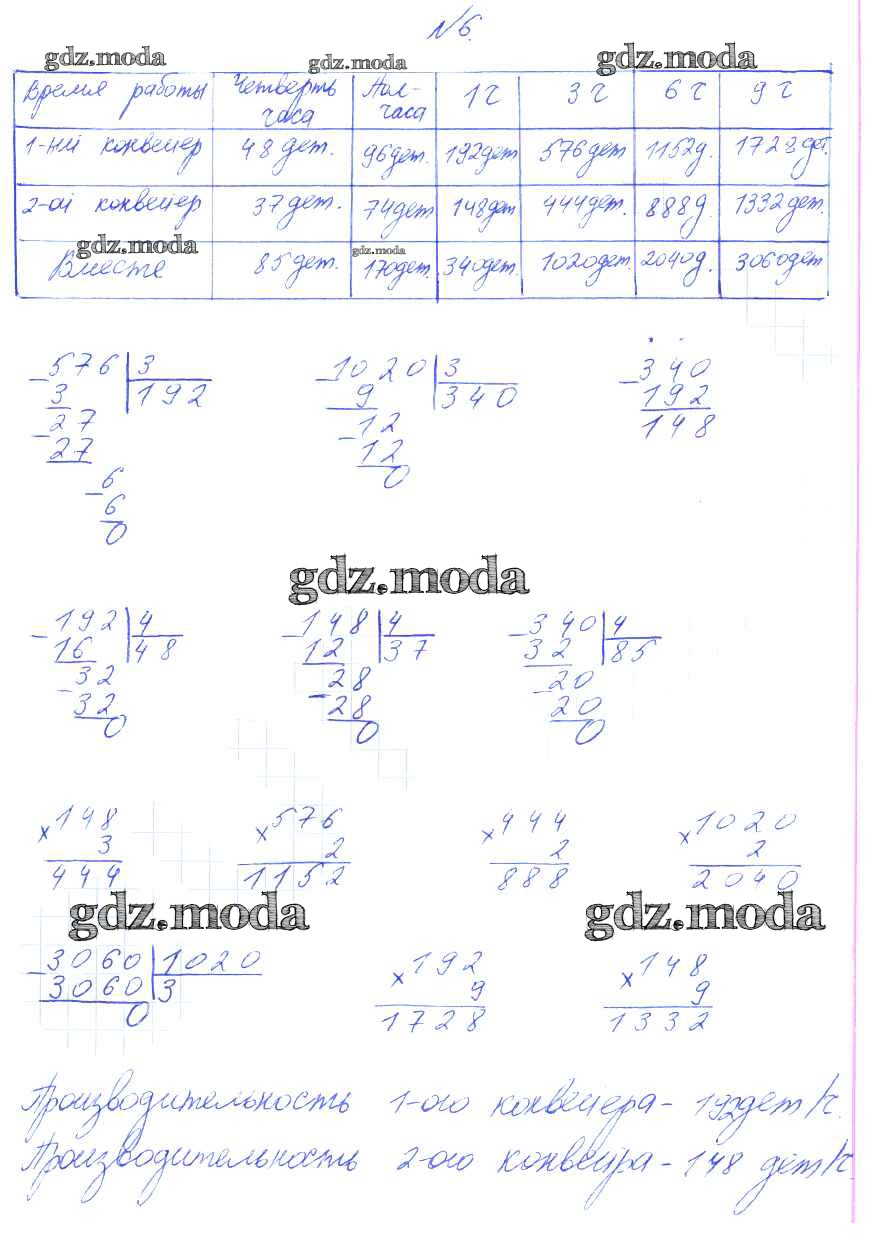 №6.
gdz.moda gdz.moda gdz.moda
Время работы Четверть часа Пол-часа 1 ч 3 ч 6 ч 9 ч
1-ый конвейер 48 дет. 96 дет. 192 дет 576 дет 1152 д. 1728 дет.
2-ой конвейер 37 дет. 74 дет 148 дет 444 дет. 888 д 1332 дет.
gdz.moda gdz.moda
Вместе 85 дет. 170 дет. 340 дет. 1020 дет. 2040 д. 3060 дет
- 576 3 - 1020 3 - 340
3 192 9 340 192
- 27 - 12 148
27 12
- 6 0
6
0
gdz.moda
- 192 4 - 148 4 - 340 4
16 48 12 37 32 85
- 32 - 28 - 20
32 28 20
0 0 0
× 148 × 576 × 444 × 1020
3 2 2 2
444 1152 888 2040
gdz.moda gdz.moda
- 3060 1020 × 192 × 148
3060 3 9 9
0 1728 1332
Производительность 1-ого конвейера - 192 дет/ч.
Производительность 2-ого конвейра - 148 дет/ч